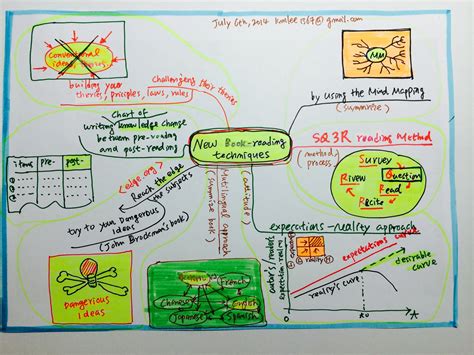 July 6th, 2014 kenlee1567@gmail.com
Conventional
ideas, theories
building your
theories, priciples, laws, rules
Challenging their theories
MM
by using the Mind Mapping
(summerise)
Chart of
writing knowledge change
between pre-reading
and post-reading
New Book-reading
techniques
SQ3R reading Method
(method,
process)
Survey
Question
Read
Rivew
REcite
items pre- post-
<edge.org>
Reach the edge
in this subjects
try to your Dangerous
Ideas
(John Brockman's book)
Dangerous
Ideas
Multilingual approach
(summerise book)
(attitude)
French
Chinese
English
Japanese
Spanish
expecations-reality approach
reality
expectations curve
desirable
curve
reality's curve
O
A